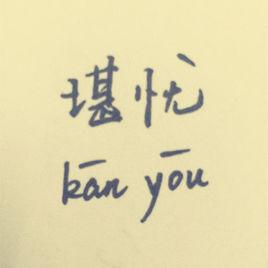 堪忧
kān yōu